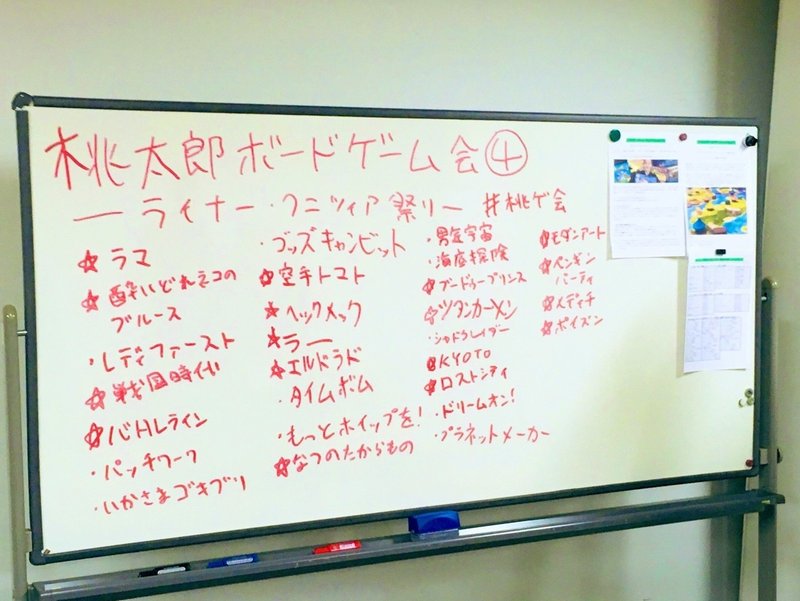 桃太郎ボードゲーム会④
ーライナー・クニツィア祭りー #桃ゲ会
☆ラマ
☆酔いどれネコの
ブルース
・レディファースト
☆戦国時代
☆バトルライン
・パッチワーク
・いかさまゴキブリ
・ゴッズギャンビット
☆空手トマト
☆ヘックメック
☆ラー
☆エルドラド
・タイムボム
・もっとホイップを!
☆なつのたからもの
・男気宇宙
・海底探険
☆ブードゥープリンス
☆ツタンカーメン
・シャドウレイダー
☆KYOTO
☆ロストシティ
・ドリームオン!
・プラネットメーカー
☆モダンアート
☆ペンギン
パーティ
☆メディチ
☆ポイズン